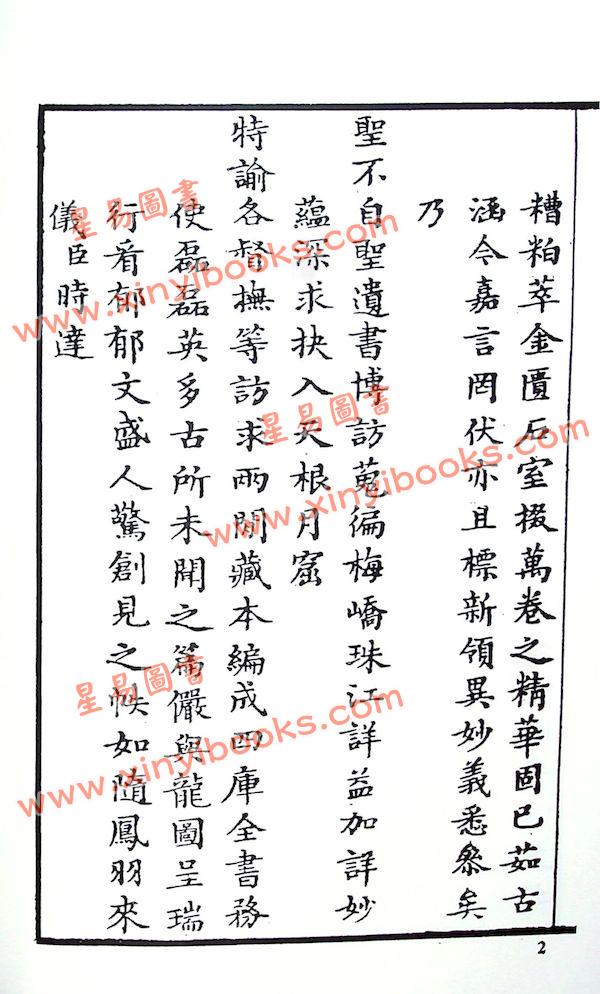 糟粕萃金匱石室掇萬卷之精華固已茹古
涵今嘉言罔伏亦且標新領異妙義悉叅矣
乃
聖不自聖遺書博訪蒐徧梅嶠珠江詳益加詳妙
蘊深求抉入天根月窟
特諭各督撫等訪求兩間藏本編成四庫全書務
使磊磊英多古所未聞之篇儼與龍圖呈瑞
行看郁郁文盛人驚創見之帙如隨鳳羽來
儀臣時達
2
星易圖書
www.xinyibooks.com
星易圖書
www.xinyibooks.com
星易圖書
www.xinyibooks.com